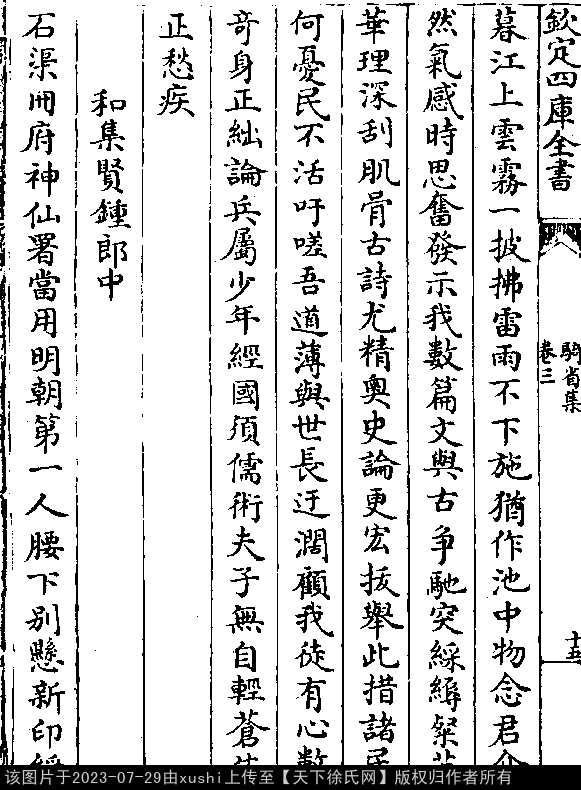 欽定四庫全書
騎省集
卷三
十五
暮江上雲霧一披拂雷雨不下施猶作池中物念君介
然氣感時思奮發示我數篇文與古争馳突綵縟粲
華理深刮肌骨古詩尤精奥史論更宏拔舉此措諸民
何憂民不活吁嗟吾道薄與世長迂濶顧我徒有心數
奇身正絀論兵屬少年經國須儒術夫子無自輕蒼生
正愁疾
和集賢鍾郎中
石渠册府神仙署當用明朝第一人腰下别懸新印綬
该图片于2023-07-29由xushi上传至【天下徐氏网】版权归作者所有